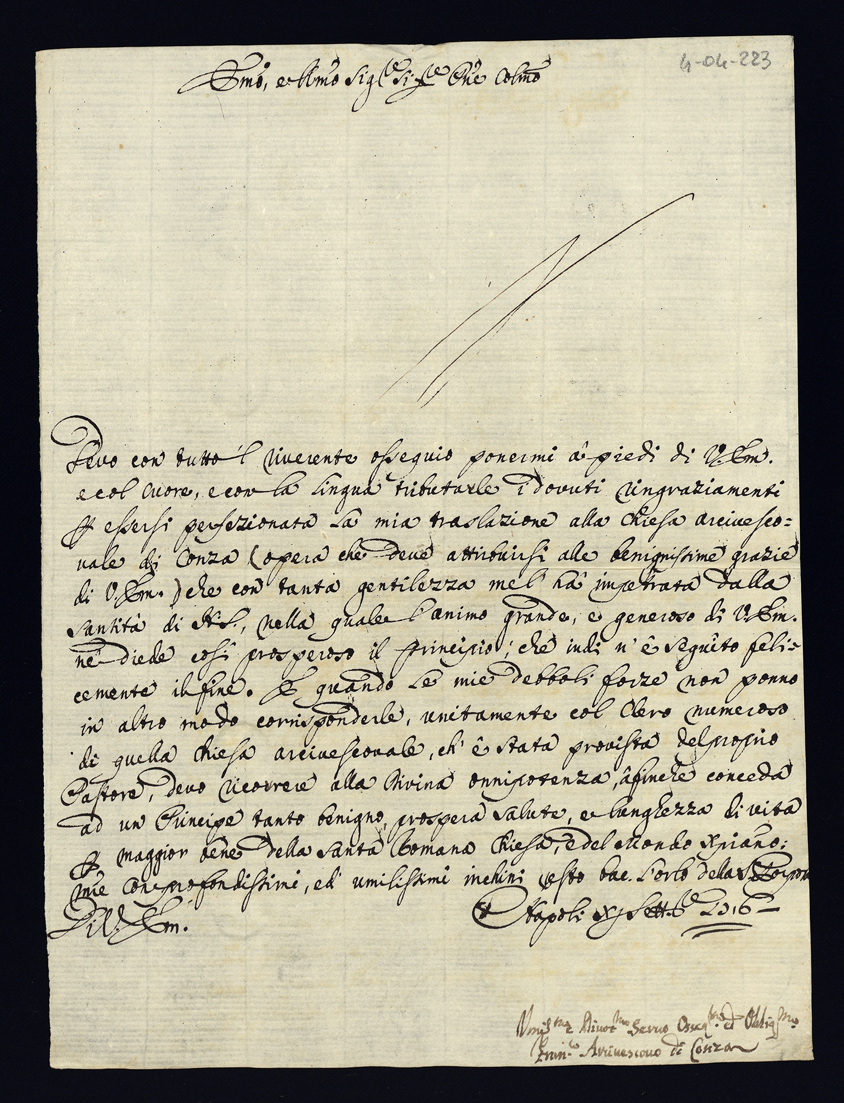 4-04-223
Emō, e Rmō Sig.re Sig.re Prōe Colmō
Devo con tutto 'l riverente ossequio ponermi à piedi di V. Em.
e col Cuore, e con la lingua tributarle i dovuti ringraziamenti
P essersi perfezionata la mia traslazione alla Chiesa arcivesco=
vale di Conza (opera che deve attribuirsi alle benignissime grazie
di V. Em.) che con tanta gentilezza me l' hà impetrata dalla
Santità di N. S., nella quale l'animo grande, e generoso di V. Em.
ne diede così prosperoso il principio; che indi n' è seguito feli=
cemente il fine. E quando le mie debboli forze non ponno
in altro modo corrisponderle, unitamente col Clero numeroso
di quella Chiesa arcivescovale, ch' è stata provista del proprio
Pastore, devo ricorrere alla Divina onnipotenza, àfinche conceda
ad un Principe tanto benigno, prospera salute, e lunghezza di vita
P maggior bene della Santa Romana Chiesa, e del Mondo Xpiano;
mie con profondissimi, ed umilissimi inchini resto bac. l'orlo della S.
Di V. Em.
Napoli XJ Sett.re
Umis.mo Divot.mo Servo Osseq.mo ed Obligmo
Arcivescovo di Conza